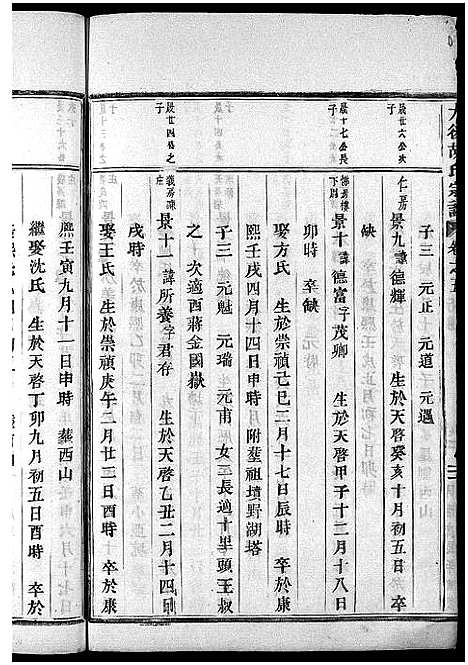 胡氏宗譜 卷之五
子三 元正 元道 元遇
晟廿六公次子 仁房 景九 諱德輝 生於天啓癸亥十月初五日 卒
缺
晟十七公長子 景十 諱德富 字茂卿 生於天啓甲子十二月十八日
卯時 卒缺
娶方氏 生於崇禎己巳二月十七日辰時 卒於康
熙壬戌四月十四日申時 附葬祖墳野湖塔
子三 元魁 元瑞 元甫 女二 長適十里頭王叔
之 次適西蔣金國嶽
晟廿四公之子 義房 景十一 諱所養 字君存 生於天啓乙丑二月十四日
戌時
娶王氏 生於崇禎庚午三月廿三日酉時 卒於康
熙壬寅九月十一日申時 葬西山
繼娶沈氏 生於天啓丁卯九月初五日酉時 卒於